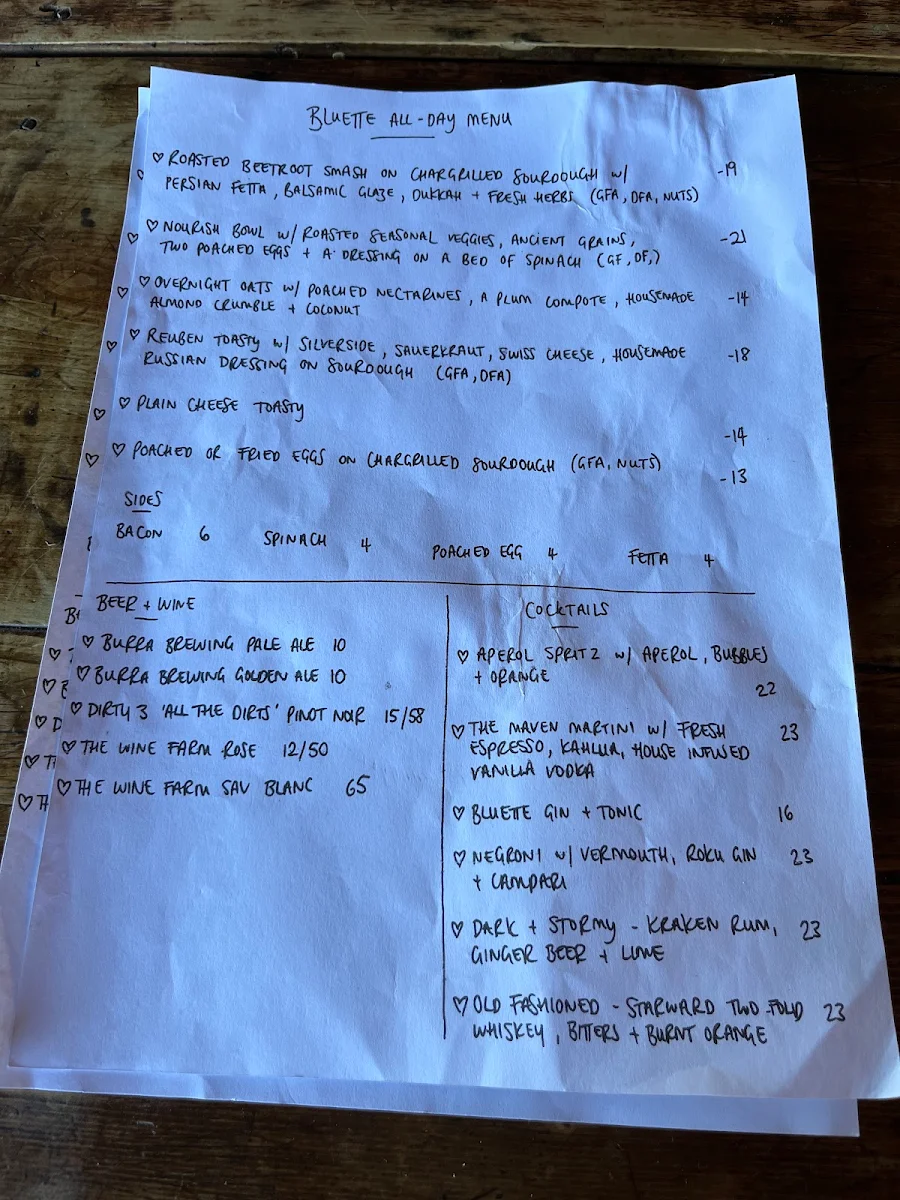 BLUETTE ALL-DAY MENU
♡ ROASTED BEETROOT SMASH ON CHARGRILLED SOURDOUGH w/ -19
PERSIAN FETTA, BALSAMIC GLAZE, DUKKAH + FRESH HERBS (GFA, DFA, NUTS)
♡ NOURISH BOWL w/ ROASTED SEASONAL VEGGIES, ANCIENT GRAINS, -21
TWO POACHED EGGS + A DRESSING ON A BED OF SPINACH (GF, DF,)
♡ OVERNIGHT OATS w/ POACHED NECTARINES, A PLUM COMPOTE, HOUSEMADE -14
ALMOND CRUMBLE + COCONUT
♡ REUBEN TOASTY w/ SILVERSIDE, SAUERKRAUT, SWISS CHEESE, HOUSEMADE -18
RUSSIAN DRESSING ON SOURDOUGH (GFA, DFA)
♡ PLAIN CHEESE TOASTY -14
♡ POACHED OR FRIED EGGS ON CHARGRILLED SOURDOUGH (GFA, NUTS) -13
SIDES
BACON 6 SPINACH 4 POACHED EGG 4 FETTA 4
BEER + WINE
♡ BURRA BREWING PALE ALE 10
♡ BURRA BREWING GOLDEN ALE 10
♡ DIRTY 3 'ALL THE DIRTS' PINOT NOIR 15/58
♡ THE WINE FARM ROSE 12/50
♡ THE WINE FARM SAV BLANC 65
COCKTAILS
♡ APEROL SPRITZ w/ APEROL, BUBBLES
+ ORANGE 22
♡ THE MAVEN MARTINI w/ FRESH 23
ESPRESSO, KAHLUA, HOUSE INFUSED
VANILLA VODKA
♡ BLUETTE GIN + TONIC 16
♡ NEGRONI w/ VERMOUTH, ROKU GIN 23
+ CAMPARI
♡ DARK + STORMY - KRAKEN RUM, 23
GINGER BEER + LIME
♡ OLD FASHIONED - STARWARD TWO-FOLD 23
WHISKEY, BITTERS + BURNT ORANGE